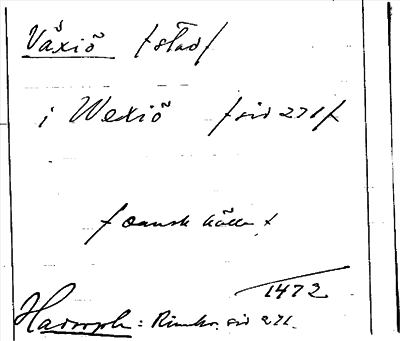 Växiö /stad/
i Wexiö /sid 271/
/dansk källa/
1472
Hadorph: Rimkr. sid 271.